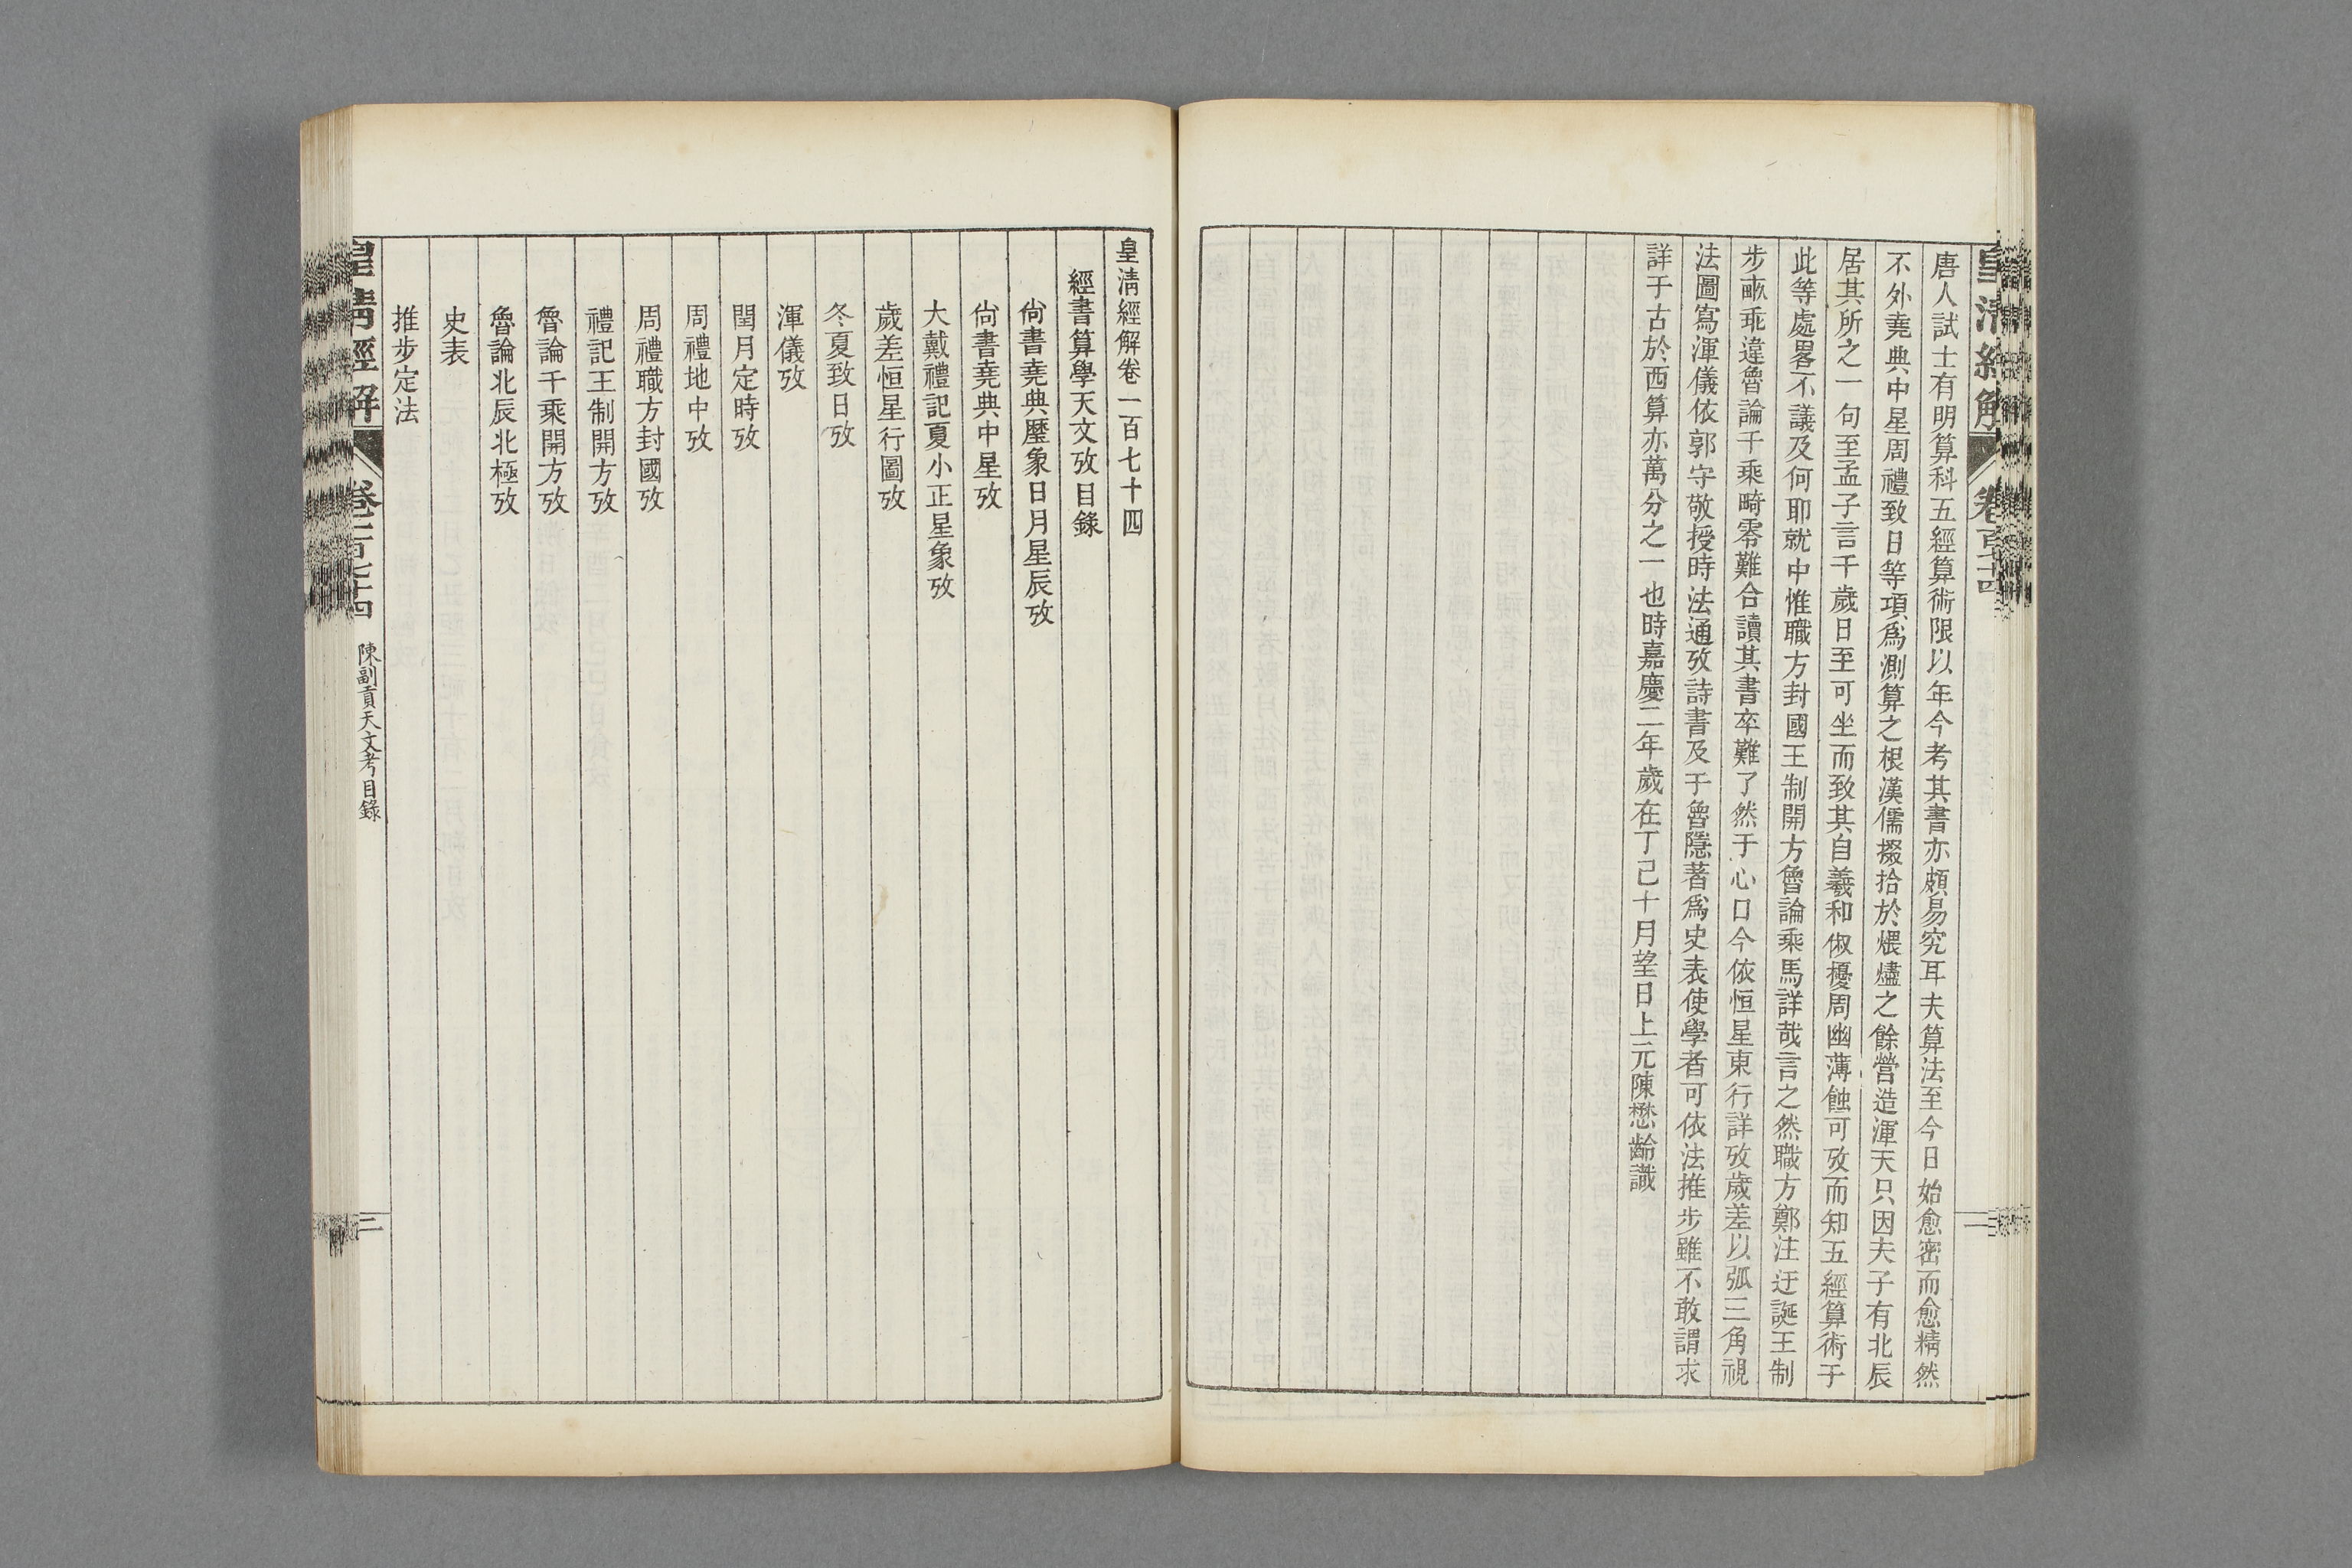 唐人試士有明算科五經算術限以年今考其書亦頗易究耳夫算法至今日始愈密而愈精然
不外堯典中星周禮致日等項爲測算之根漢儒掇拾於煨燼之餘營造渾天只因夫子有北辰
居其所之一句至孟子言千歲日至可坐而致其自羲和俶擾周幽薄蝕可攷而知五經算術于
此等處畧不議及何耶就中惟職方封國王制開方魯論乘馬詳哉言之然職方鄭注迂誕王制
步畝乖違魯論千乘畸零難合讀其書卒難了然于心口今依恒星東行詳攷歲差以弧三角視
法圖寫渾儀依郭守敬授時法通攷詩書及于魯隱著爲史表使學者可依法推步雖不敢謂求
詳于古於西算亦萬分之一也時嘉慶二年歲在丁己十月望日上元陳懋齡識
皇清經解卷一百七十四
經書算學天文攷目錄
尙書堯典歷象日月星辰攷
尙書堯典中星攷
大戴禮記夏小正星象攷
歲差恒星行圖攷
冬夏致日攷
渾儀攷
閏月定時攷
周禮地中攷
周禮職方封國攷
禮記王制開方攷
魯論千乘開方攷
魯論北辰北極攷
史表
推步定法
皇清經解
卷一百七十四
陳副貢天文考目錄
二